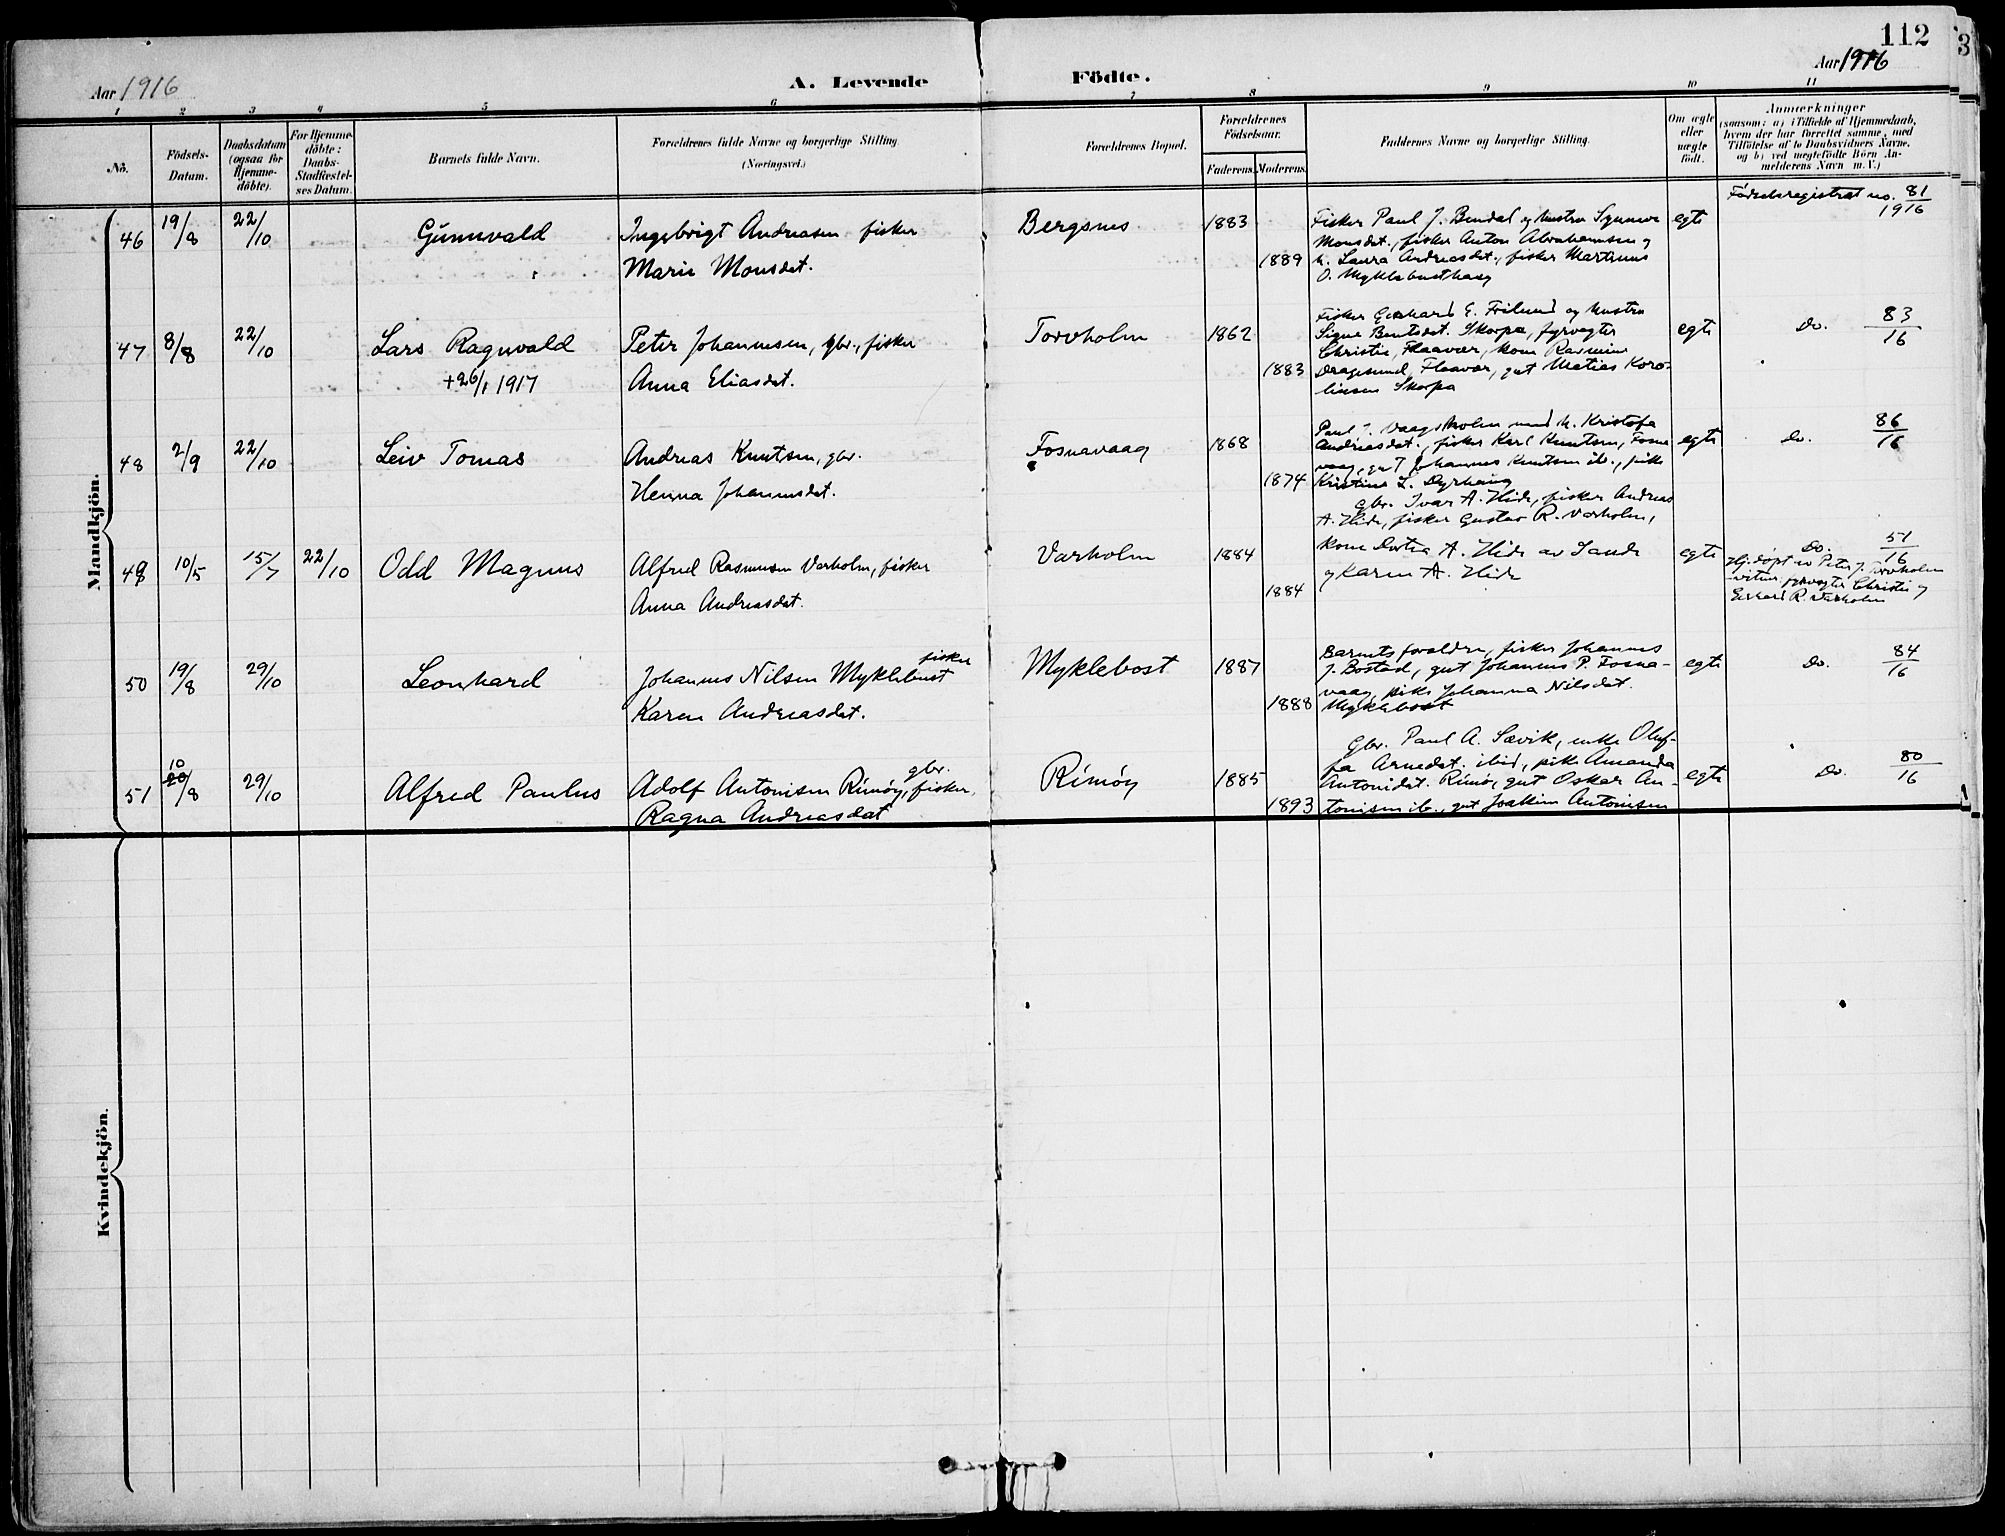 112
3
Aar 1916
A. Levende
Födte.
Aar 1916
1 2 3 4 5 6 7 8 9 10 11
No.
Födsels-
Datum.
Daabsdatum
(ogsaa for
Hjemme-
döbte).
For Hjemme-
döbte:
Daabs-
Stadfæstel-
ses Datum.
Barnets fulde Navn.
Forældrenes fulde Navne og borgerlige Stilling
(Næringsvei.)
Forældrenes Bopæl.
Forældrenes
Födselsaar.
Faderens. Moderens.
Faddernes Navne og borgerlige Stilling.
Om ægte
eller
uægte
födt.
Anmærkninger
(saasom: a) i Tilfælde af Hjemmedaab,
hvem der har forrettet samme, med
Tilföielse af to Daabsvidners Navne.
og b) ved uegtefödte Börn An-
melderens Navn m. V.)
Mandkjön.
46 19/8 22/10 Gunnvald
Ingebrigt Andreasen fisker
Marie Monsdat.
Bergsnes 1883
1889
Fisker Paul J. Bendal og hustru Synnøve
Monsdat., fisker Anton Abrahamsen og
h. Laura Andreasdat., fisker Martinus
O. Myklebusthaug
egte
Fødselsregistrat no. 81/1916
47 8/8 22/10 Lars Ragnvald
+ 26/1 1917
Peter Johannesen, gbr., fisker
Anna Eliasdat.
Torvholm 1862
1883
Fisker Gerhard E. Frilund og hustru
Signe Bentsdat. Skorpa, fyrvogter
Christie, Flaavær, kone Rasmine
Dragesund, Flaavær, gut Matias Karo-
linsen Skorpa
egte
Do. 83/16
48 2/9 22/10 Leiv Tomas
Andreas Knutsen, gbr.
Henna Johannesdat.
Fosnavaag 1868
1874
Paul J. Vaagsholm med h. Kristofa
Andreasdat., fisker Karl Knutsen, Fosna
vaag, gut Johannes Knutsen ib., pike
Kristine L. Dyrhaug
egte
Do. 86/16
49 10/5 15/7 22/10 Odd Magnus
Alfred Rasmusen Varholm, fisker
Anna Andreasdat.
Varholm 1884
1884
Gbr. Ivar A. Hide, fisker Andreas
A. Hide, fisker Gustav R. Varholm,
kone Dortea A. Hide av Sande
og Karen A. Hide
egte
Do. 51/16
Hj. døpt av Peter J. Torvholm
vitner fyrvogter Christie og
Gerhard R. Varholm
50 19/8 29/10 Leonhard
fisker
Johannes Nilsen Myklebust
Karen Andreasdat.
Myklebost 1887
1888
Barnets foreldre, fisker Johannes
J. Bostad, gut Johannes P. Fosna-
vaag, pike Johanna Nilsdat.
Myklebost
egte
Do. 84/16
51 20 10/8 29/10 Alfred Paulus
gbr.
Adolf Antonisen Rimøy, fisker,
Ragna Andreasdat
Rimøy 1885
1893
Gbr. Paul A. Sævik, enke Oluf-
fa Arnedat. ibid, pike Amanda
Antonidat. Rimø, gut Oskar An-
tonisen ib., gut Joakim Antonisen
egte
Do. 80/16
Kvindekjön.